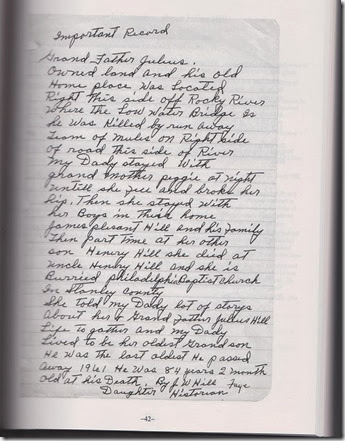 Important Record
Grand Father Julius.
Owned land and his old
Home place, was Located
Right this side off Rocky River
Where the Low Water Bridge Is
he Was Killed by run away
Team of mules on Right side
of road this side of River
my Dady stayed With
grand mother peggie at night
untill she fell and broke her
hip. Then she stayed With
her Boys in Their home
James plesant Hill and his Family
Then part time at her other
son Henery Hill she died at
Uncle Henery Hill and she is
Burried philadelphia Baptist Church
In Stanley County
She told my Dady lot of storys
About her & Grand Father Julius Hill
Life to gather and my Dady
Lived to be her oldest Grandson
He was the last oldest He passed
Away 1961 He Was 84 years 2 month
old at his Death. By J. W Hill Faye
Daughter Historian
-42-